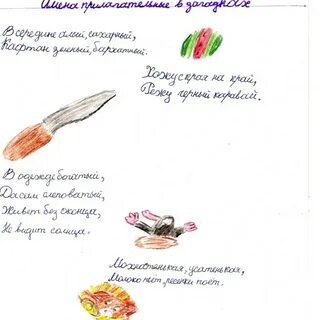 Имена прилагательные в загадках
В середине алый, сахарный,
Кафтан зеленый, бархатный.
Хожу с края на край,
Режу черный каравай.
В одежде богатый,
Да сам слеповатый,
Живет без оконца,
Не видит солнца.
Мохнатенькая, усатенькая,
Молоко пьет, песенки поет.